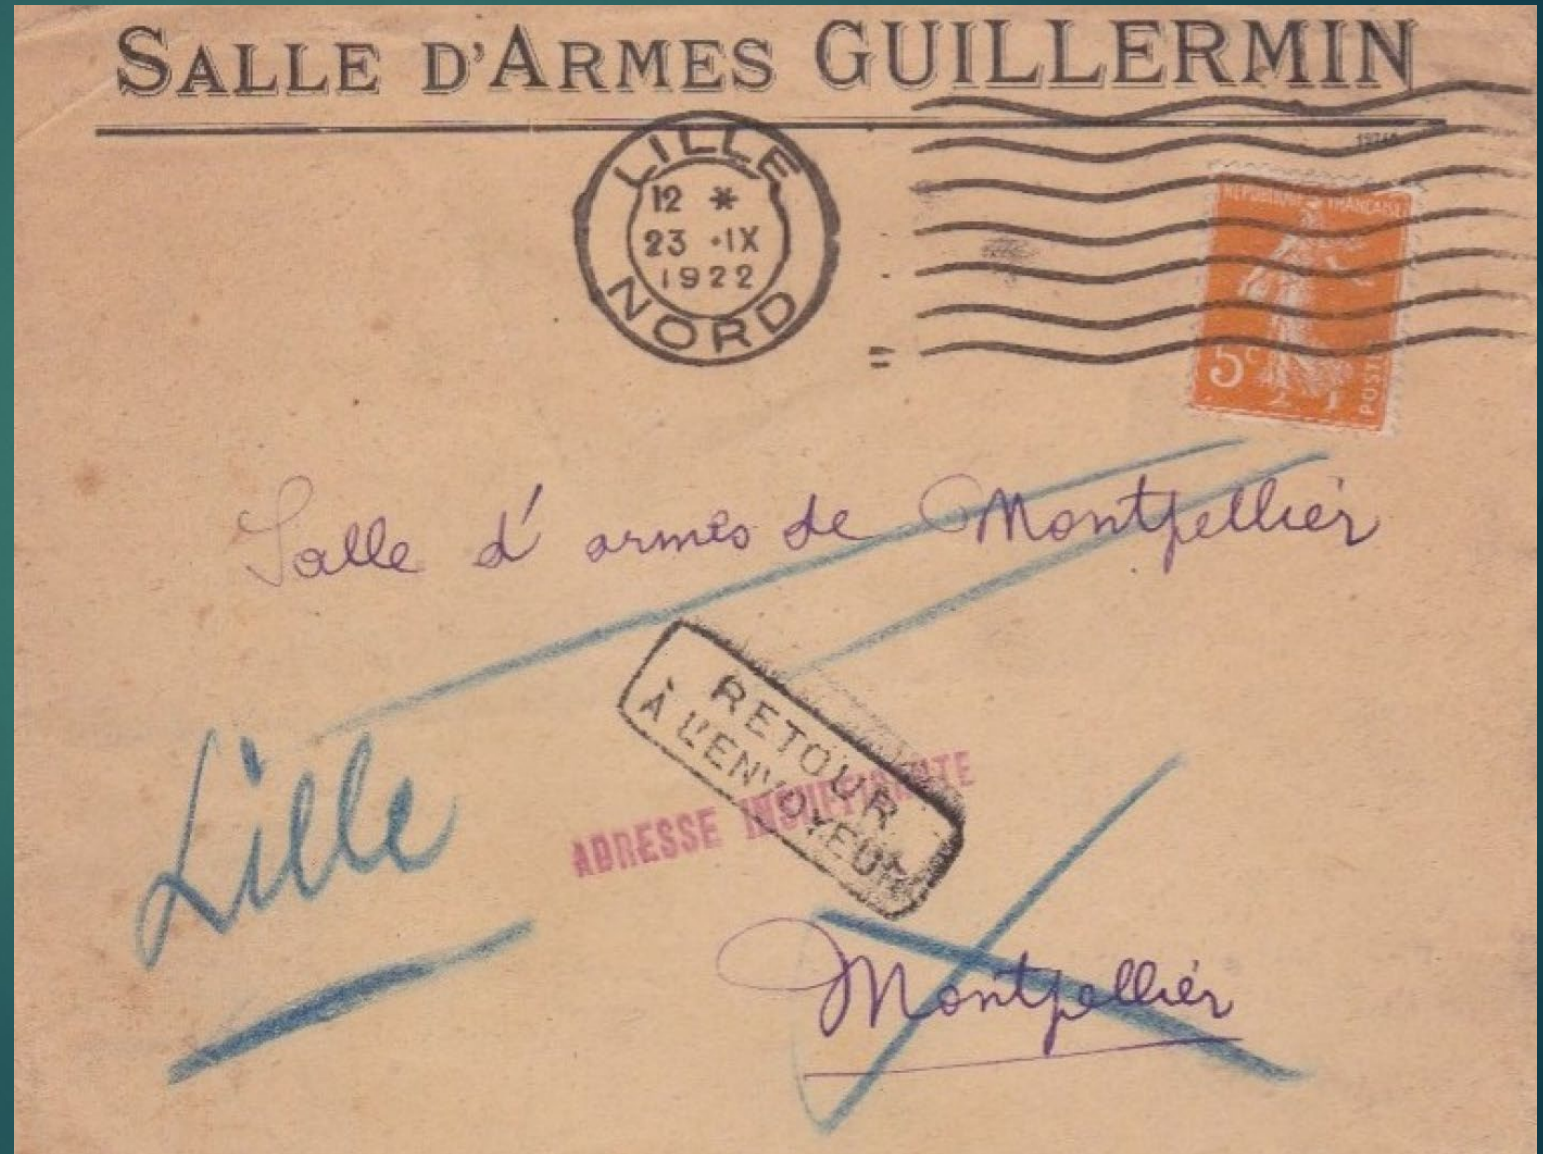 SALLE D'ARMES GUILLERMIN
LILLE
12 *
23 · IX
1922
NORD
REPUBLIQUE FRANCAISE
5c
POSTES
Salle d'armes de Montpellier
RETOUR
À L'ENVOYEUR
ADRESSE INSUFFISANTE
Lille
Montpellier